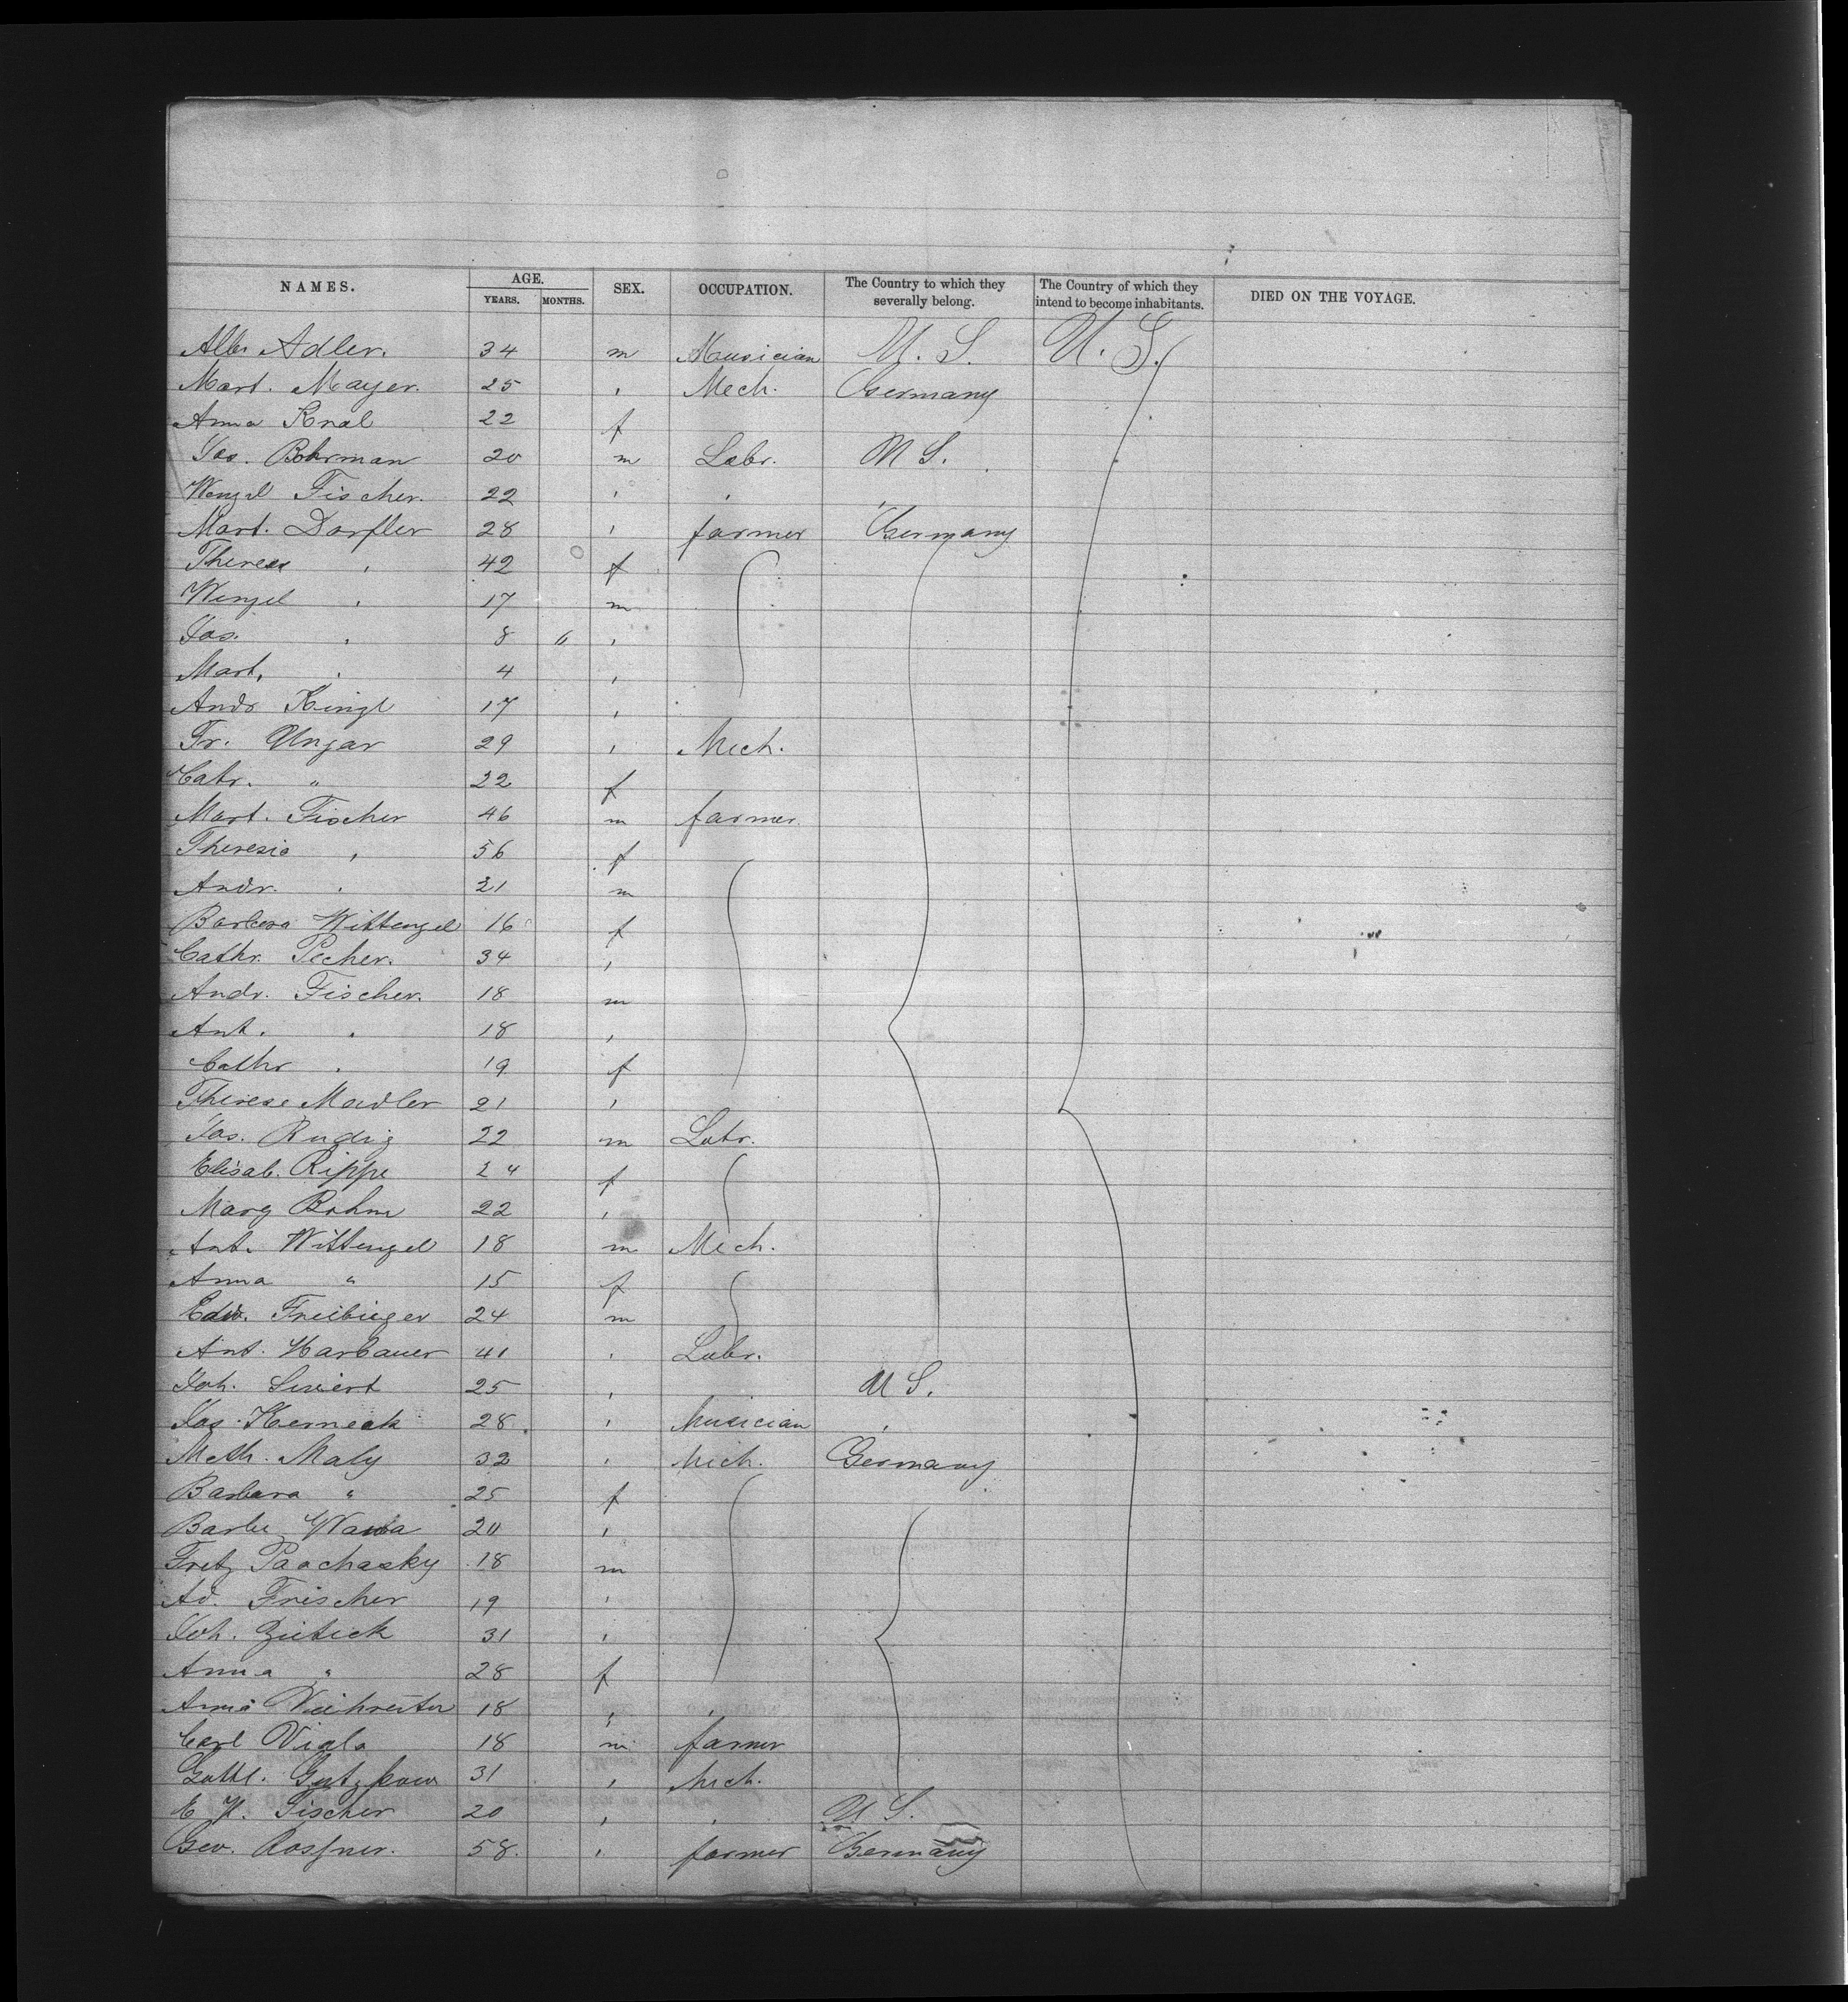 NAMES. AGE. SEX. OCCUPATION. The Country to which they severally belong. The Country of which they intend to become inhabitants. DIED ON THE VOYAGE.
YEARS. MONTHS.
Alb. Adler. 34 m Musician U. S. U. S.
Mart. Mayer. 25 , Mech. Germany
Anna Knal 22 f
Jos. Bohrman 20 m Labr. U S.
Wenzel Fischer. 22 , , ,
Mart. Dorfler 28 , farmer Germany
Theres , 42 f
Wenzel , 17 m
Jos. , 8 6 ,
Mart. , 4 ,
Andr Kingl 17 ,
Fr. Ungar 29 , Mech.
Catr. " 22 f
Mart. Fischer 46 m farmer
Theresia , 56 f
Andr. , 21 m
Barbara Wittengel 16 f
Cathr. Pecher. 34 ,
Andr. Fischer. 18 m
Ant. , 18 ,
Cathr , 19 f
Therese Madler 21 ,
Jos. Rudig 22 m Labr.
Elisab. Rippe 24 f
Marg Bohm 22 ,
Ant. Wittengel 18 m Mech.
Anna " 15 f
Edw. Freibieger 24 m
Ant. Harbauer 41 , Labr.
Joh. Siviert 25 , U S.
Jos. Herneck 28 , Musician ,
Math. Maly 32 , Mech. Germany
Barbara " 25 f
Barbe 20 ,
Fretz Paochasky 18 m
Ad. Frischer 19 ,
Joh. Zutick 31 ,
Anna " 28 f
Anna 18 , ,
Carl Viala 18 m farmer
Gottl. Gutzkow 31 , Mech.
E H. Fischer 20 , , U S.
Geo. Rossner. 58 , farmer Germany